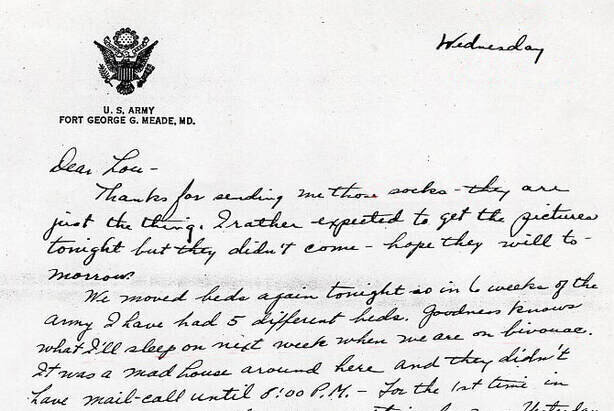 Wednesday
U. S. ARMY
FORT GEORGE G. MEADE, MD.
Dear Lou -
Thanks for sending me those socks - they are
just the thing. I rather expected to get the pictures
tonight but they didn't come - hope they will to-
morrow.
We moved beds again tonight so in 6 weeks of the
army I have had 5 different beds. Goodness knows
what I'll sleep on next week when we are on bivouac.
It was a mad house around here and they didn't
have mail-call until 8:00 P.M. - For the 1st time in